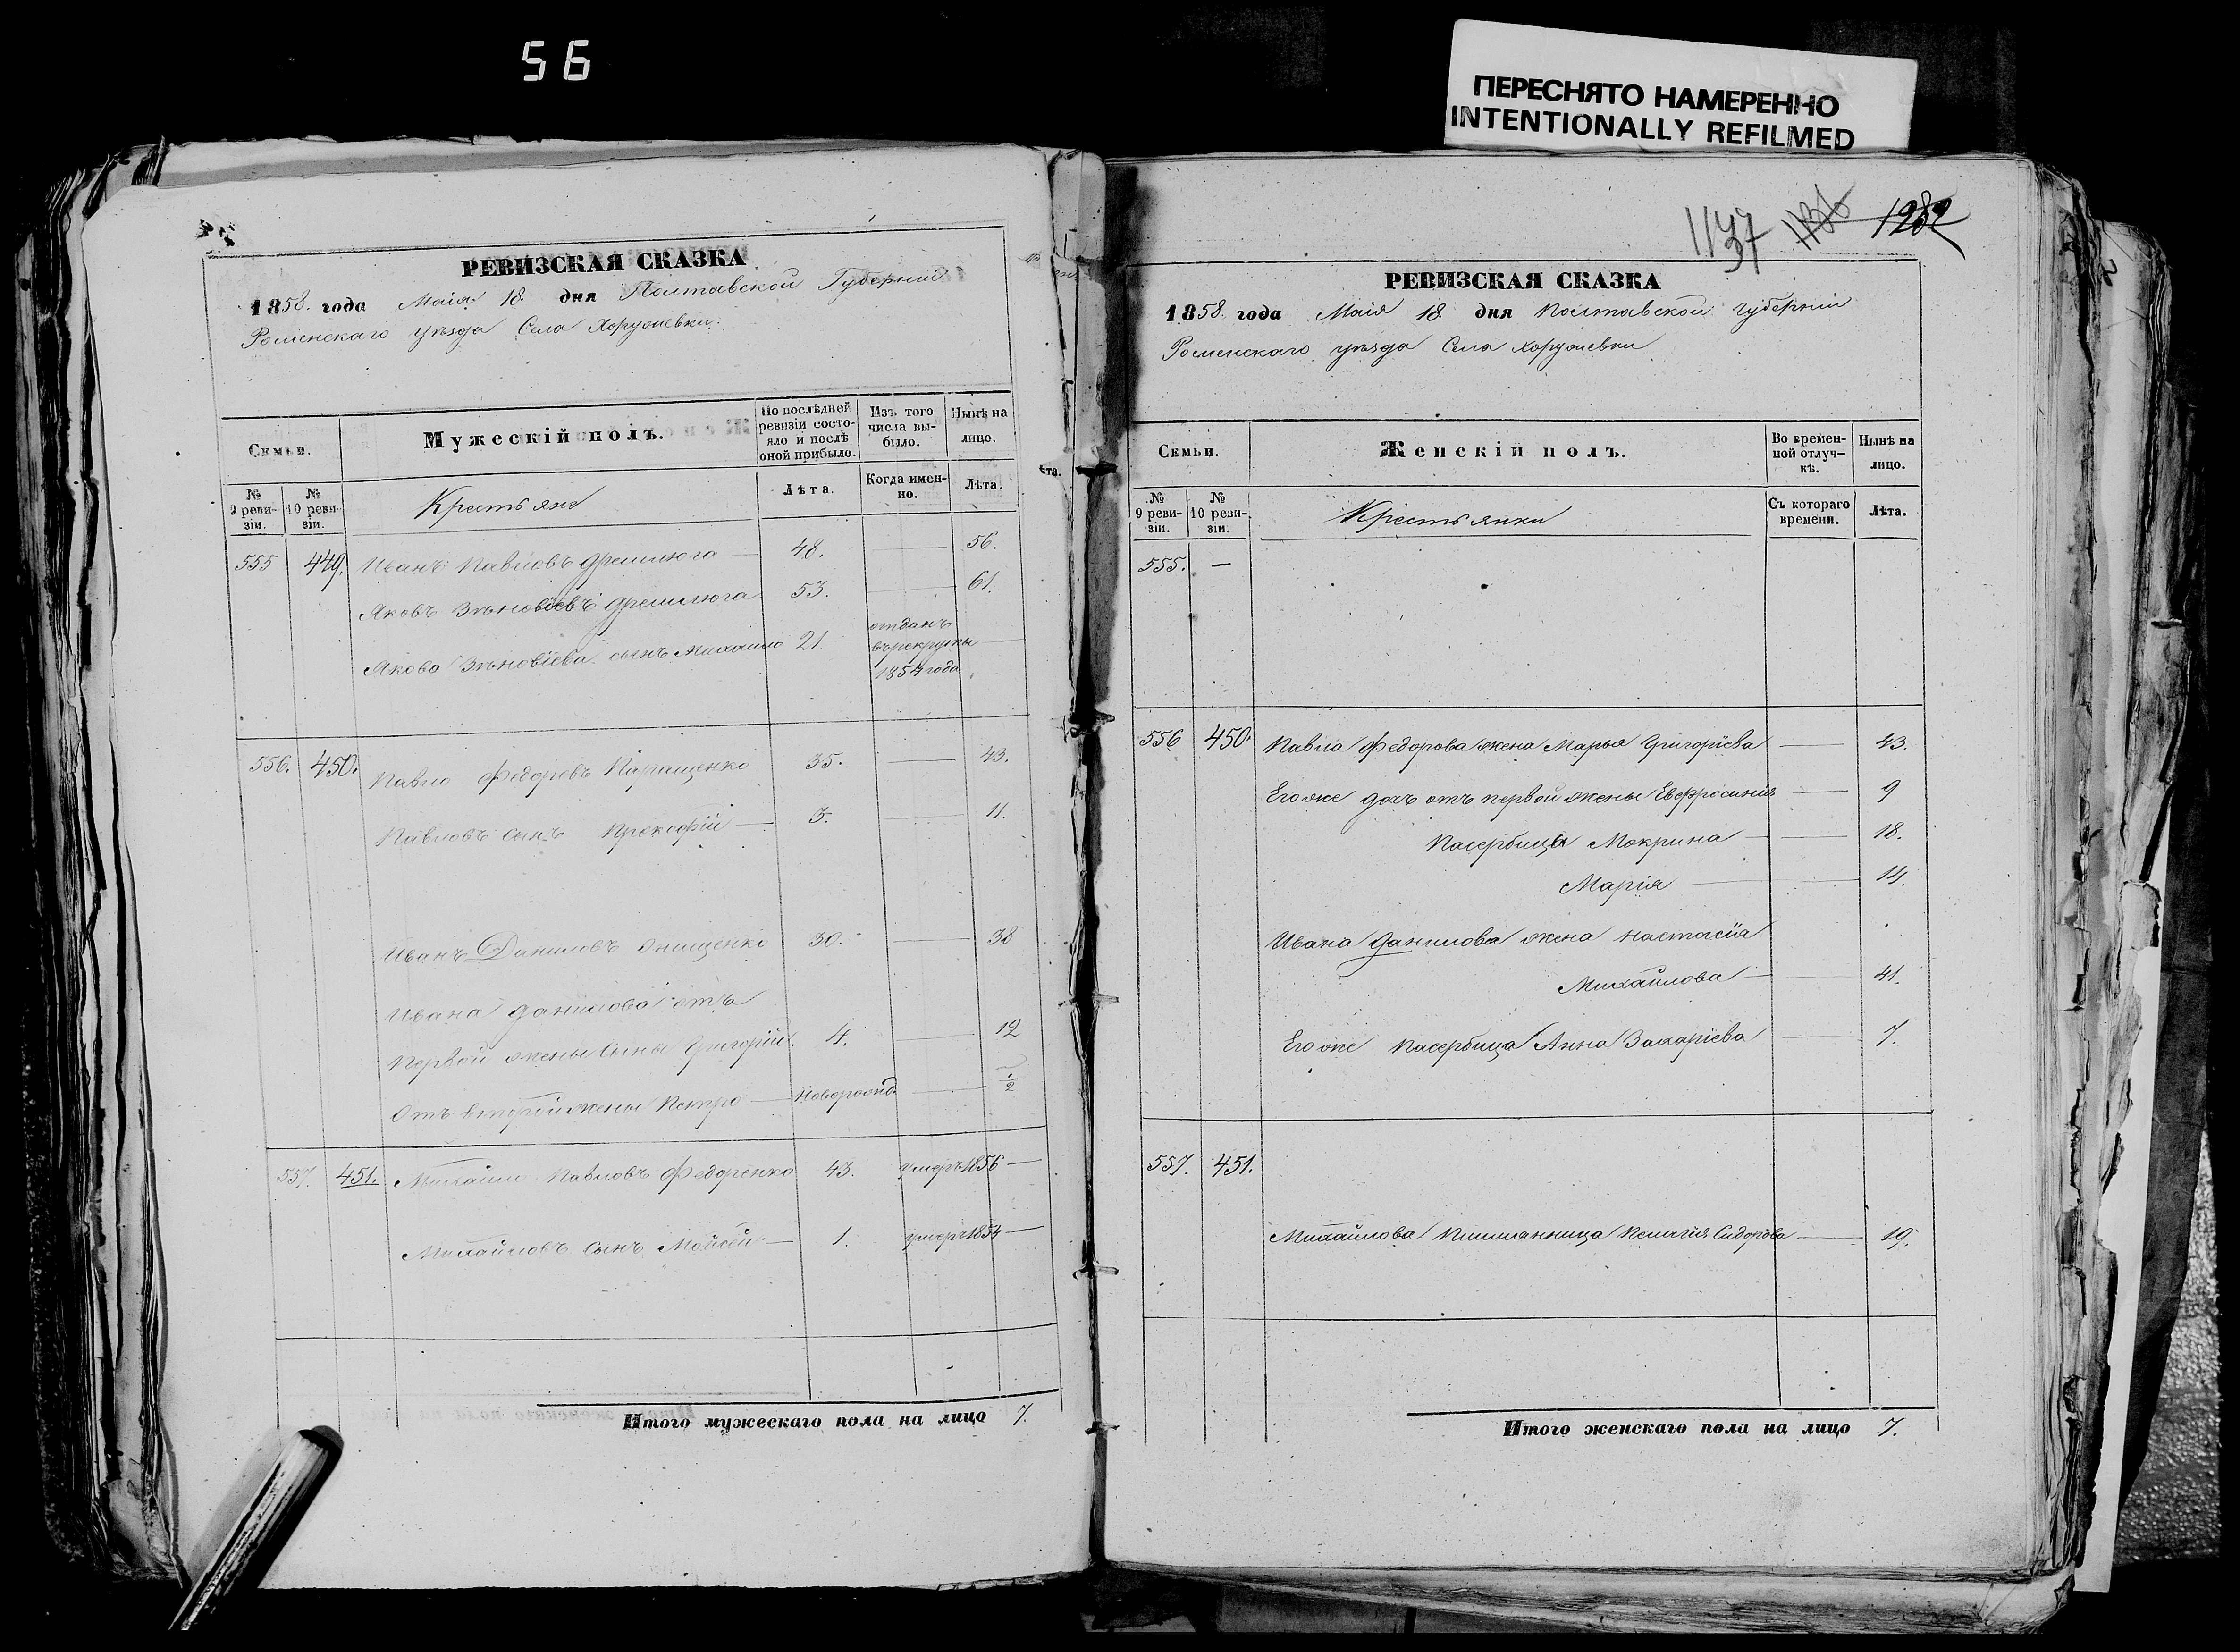 56
ПЕРЕСНЯТО НАМЕРЕННО
INTENTIONALLY REFILMED
РЕВИЗСКАЯ СКАЗКА
1858. года Маія 18 дня Полтавской Губерніи
Роменскаго уѣзда Села Хоружевки
Семьи.
Мужескій полъ.
По послѣдней ревизіи состояло и послѣ оной прибыло.
Изъ того числа выбыло.
Нынѣ на лицо.
№ 9 ревизіи.
№ 10 ревизіи.
Крестьяне
Лѣта.
Когда именно.
Лѣта.
555 449. Иванъ Павловъ Дремлюга 48. 56.
Яковъ Зѣновіевъ Дремлюга 53. 61.
Якова Зѣновіева сынъ Михайло 21. отданъ въ рекруты 1854 года
556. 450. Павло Федоровъ 35. 43.
Павловъ сынъ Прокофій 3. 11.
Иванъ Даниловъ Онищенко 30. 38
Ивана Данилова отъ
первой жены сынъ Григорій. 4. 12
Отъ второй жены Петро новорожд. 1/2
557. 451. Михайло Павловъ Федоренко 43. умеръ 1856
Михайловъ сынъ Мойсей 1. умеръ 1854
Итого мужескаго пола на лицо 7.
1137 1282
РЕВИЗСКАЯ СКАЗКА
1858. года Маія 18 дня Полтавской Губерніи
Роменскаго уѣзда Села Хоружевки
Семьи.
Женскій полъ.
Во временной отлучкѣ.
Нынѣ на лицо.
№ 9 ревизіи.
№ 10 ревизіи.
Крестьянки
Съ котораго времени.
Лѣта.
555. —
556 450. Павла Федорова жена Марья Григоріева 43.
Его же дочь отъ первой жены Евфросинія 9
Пасербица Мокрина 18.
Марія 14.
Ивана Данилова жена Настасія
Михайлова 41.
Его же пасербица Анна Захаріева 7.
557. 451.
Михайлова племянница Пелагія Сидорова 19.
Итого женскаго пола на лицо 7.